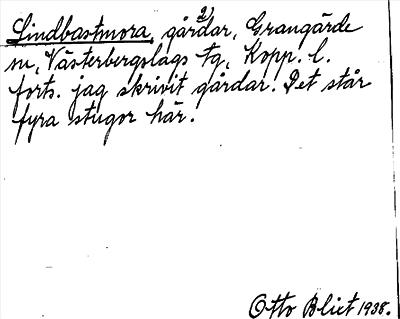 Lindbastmora, gårdar, 2) Grangärde
sn, Västerbergslags tg, Kopp. l.
forts. jag skrivit gårdar. Det står
fyra stugor här.
Otto Blixt 1938.